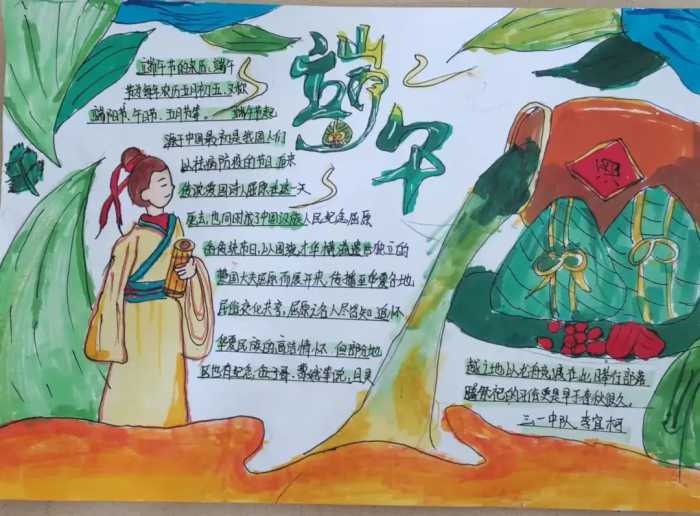 端午
端午节的来历:端午
节为每年农历五月初五,又称
端阳节、午日节、五月节等。端午节起
源于中国最初是我国人们
以祛病防疫的节日,后来
传说爱国诗人屈原在这一天
死去,也同时成了中国汉族人民纪念屈原
的传统节日,以围绕才华横溢遗世独立的
楚国大夫屈原而展开来,传播至华夏各地
民俗文化共享,屈原之名人尽皆知,追怀
华夏民族的高洁情怀 但部分地
区也有纪念伍子胥、曹娥等说,且
越之地以龙舟竞渡在此日举行部落
图腾祭祀的习俗更是早于春秋很久。
三一中队 李宜柯